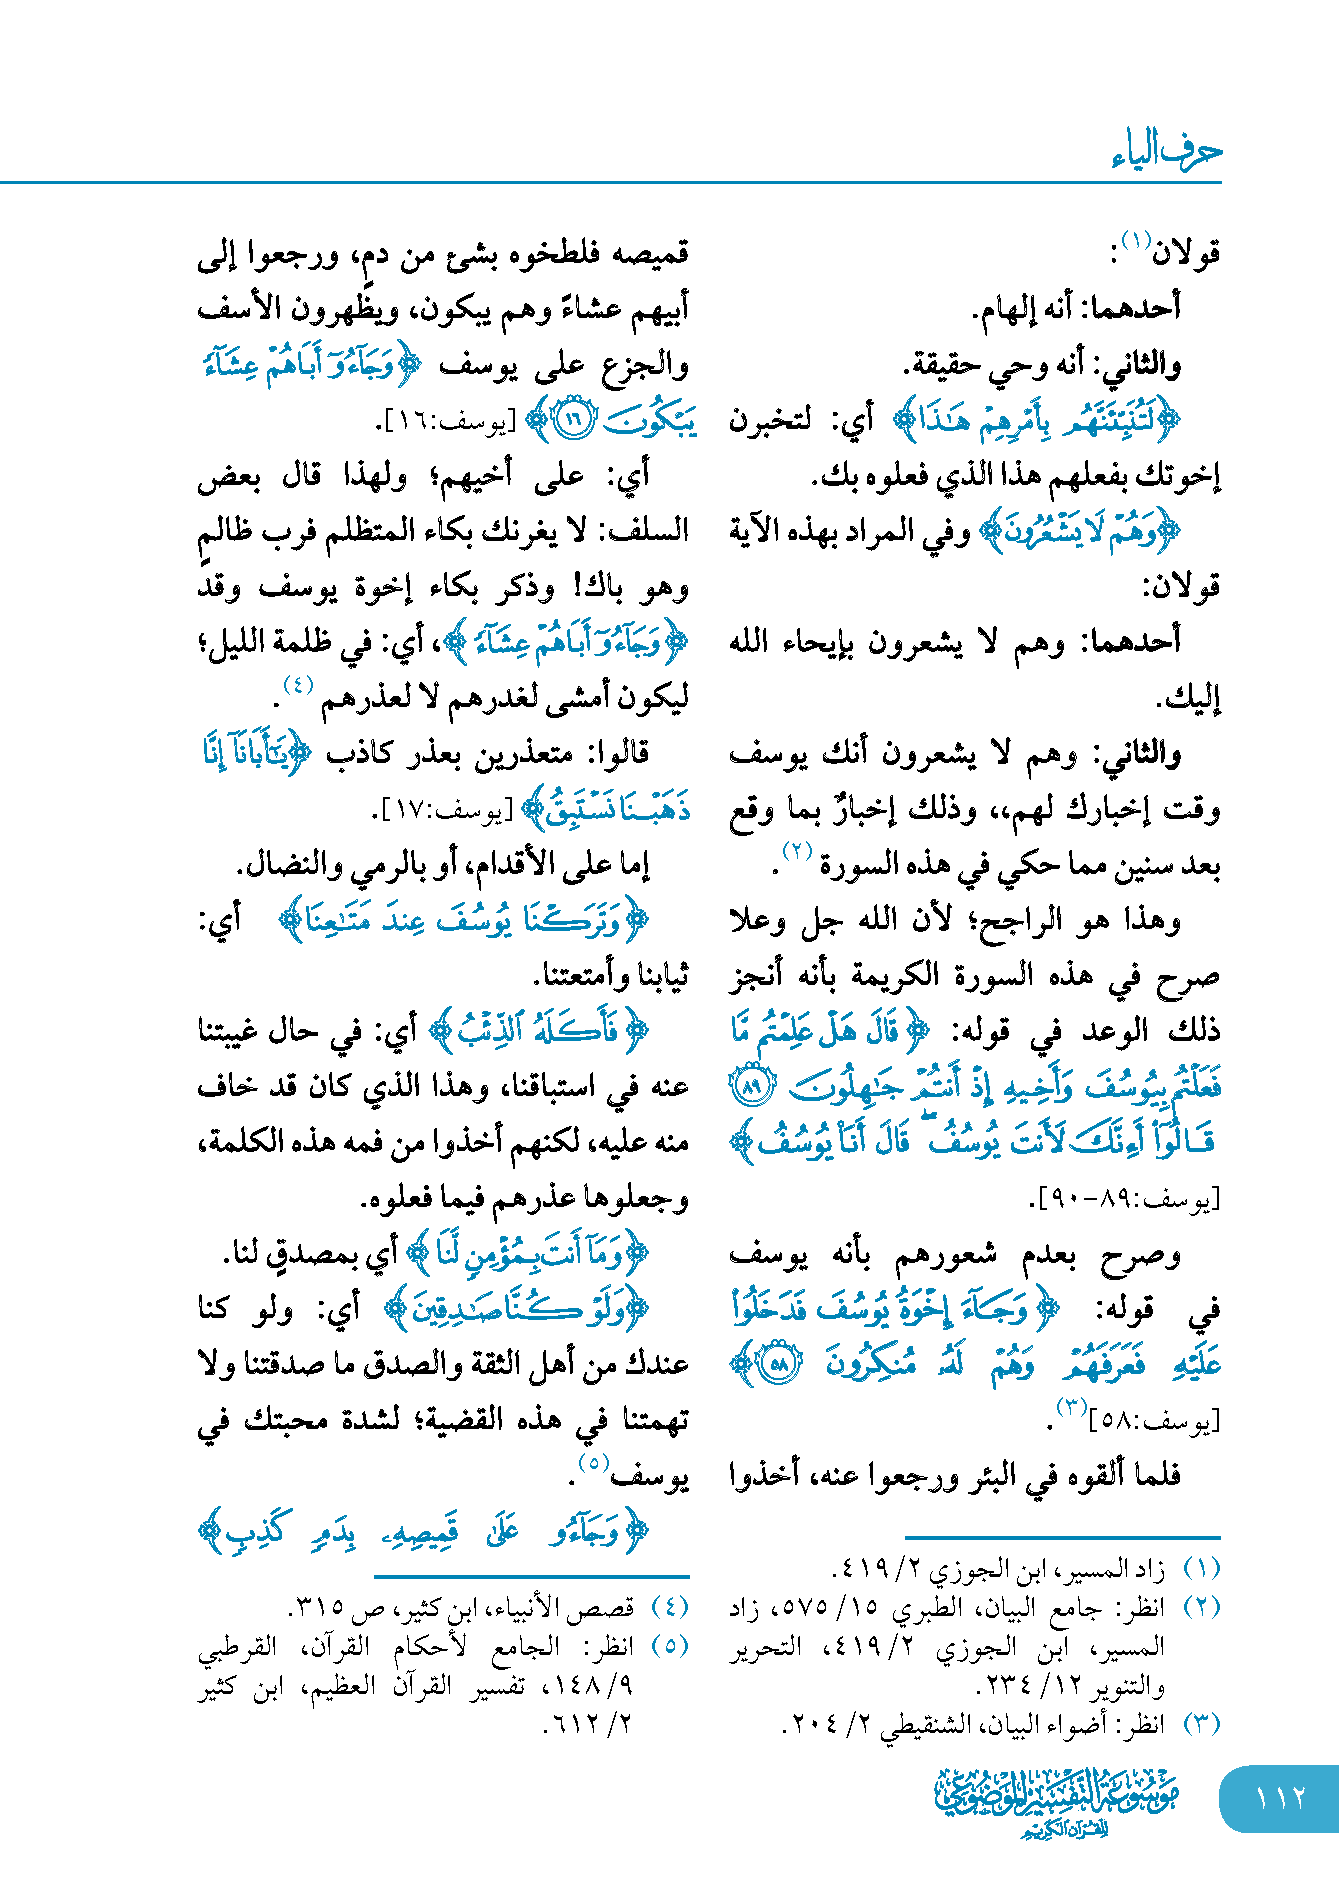 حرف الياء
قولان(١):
أحدهما: أنه إلهام.
والثاني: أنه وحي حقيقة.
﴿لَتُنَبِّئَنَّهُم بِأَمْرِهِمْ هَـٰذَا﴾ أي: لتخبرن
إخوتك بفعلهم هذا الذي فعلوه بك.
﴿وَهُمْ لَا يَشْعُرُونَ﴾ وفي المراد بهذه الآية
قولان:
أحدهما: وهم لا يشعرون بإيحاء الله
إليك.
والثاني: وهم لا يشعرون أنك يوسف
وقت إخبارك لهم،، وذلك إخبارٌ بما وقع
بعد سنين مما حكي في هذه السورة (٢).
وهذا هو الراجح؛ لأن الله جل وعلا
صرح في هذه السورة الكريمة بأنه أنجز
ذلك الوعد في قوله: ﴿قَالَ هَلْ عَلِمْتُم مَّا
فَعَلْتُم بِيُوسُفَ وَأَخِيهِ إِذْ أَنتُمْ جَـٰهِلُونَ ٨٩
قَالُوٓا۟ أَءِنَّكَ لَأَنتَ يُوسُفُ ۖ قَالَ أَنَا۠ يُوسُفُ﴾
[يوسف:٨٩-٩٠].
وصرح بعدم شعورهم بأنه يوسف
في قوله: ﴿وَجَآءَ إِخْوَةُ يُوسُفَ فَدَخَلُوا۟
عَلَيْهِ فَعَرَفَهُمْ وَهُمْ لَهُۥ مُنكِرُونَ ٥٨﴾
[يوسف:٥٨](٣).
فلما ألقوه في البئر ورجعوا عنه، أخذوا
(١) زاد المسير، ابن الجوزي ٢/ ٤١٩.
(٢) انظر: جامع البيان، الطبري ١٥/ ٥٧٥، زاد
المسير، ابن الجوزي ٢/ ٤١٩، التحرير
والتنوير ١٢/ ٢٣٤.
(٣) انظر: أضواء البيان، الشنقيطي ٢/ ٢٠٤.
قميصه فلطخوه بشئ من دمٍ، ورجعوا إلى
أبيهم عشاءً وهم يبكون، ويظهرون الأسف
والجزع على يوسف ﴿وَجَآءُوٓ أَبَاهُمْ عِشَآءً
يَبْكُونَ ١٦﴾ [يوسف:١٦].
أي: على أخيهم؛ ولهذا قال بعض
السلف: لا يغرنك بكاء المتظلم فرب ظالمٍ
وهو باك! وذكر بكاء إخوة يوسف وقد
﴿وَجَآءُوٓ أَبَاهُمْ عِشَآءً﴾، أي: في ظلمة الليل؛
ليكون أمشى لغدرهم لا لعذرهم (٤).
قالوا: متعذرين بعذر كاذب ﴿يَـٰٓأَبَانَآ إِنَّا
ذَهَبْنَا نَسْتَبِقُ﴾ [يوسف:١٧].
إما على الأقدام، أو بالرمي والنضال.
﴿وَتَرَكْنَا يُوسُفَ عِندَ مَتَـٰعِنَا﴾ أي:
ثيابنا وأمتعتنا.
﴿فَأَكَلَهُ ٱلذِّئْبُ﴾ أي: في حال غيبتنا
عنه في استباقنا، وهذا الذي كان قد خاف
منه عليه، لكنهم أخذوا من فمه هذه الكلمة،
وجعلوها عذرهم فيما فعلوه.
﴿وَمَآ أَنتَ بِمُؤْمِنٍ لَّنَا﴾ أي بمصدقٍ لنا.
﴿وَلَوْ كُنَّا صَـٰدِقِينَ﴾ أي: ولو كنا
عندك من أهل الثقة والصدق ما صدقتنا ولا
تهمتنا في هذه القضية؛ لشدة محبتك في
يوسف(٥).
﴿وَجَآءُو عَلَىٰ قَمِيصِهِۦ بِدَمٍ كَذِبٍ﴾
(٤) قصص الأنبياء، ابن كثير، ص ٣١٥.
(٥) انظر: الجامع لأحكام القرآن، القرطبي
٩/ ١٤٨، تفسير القرآن العظيم، ابن كثير
٢/ ٦١٢.
موسوعة التفسير الموضوعي
للقرآن الكريم
١١٢